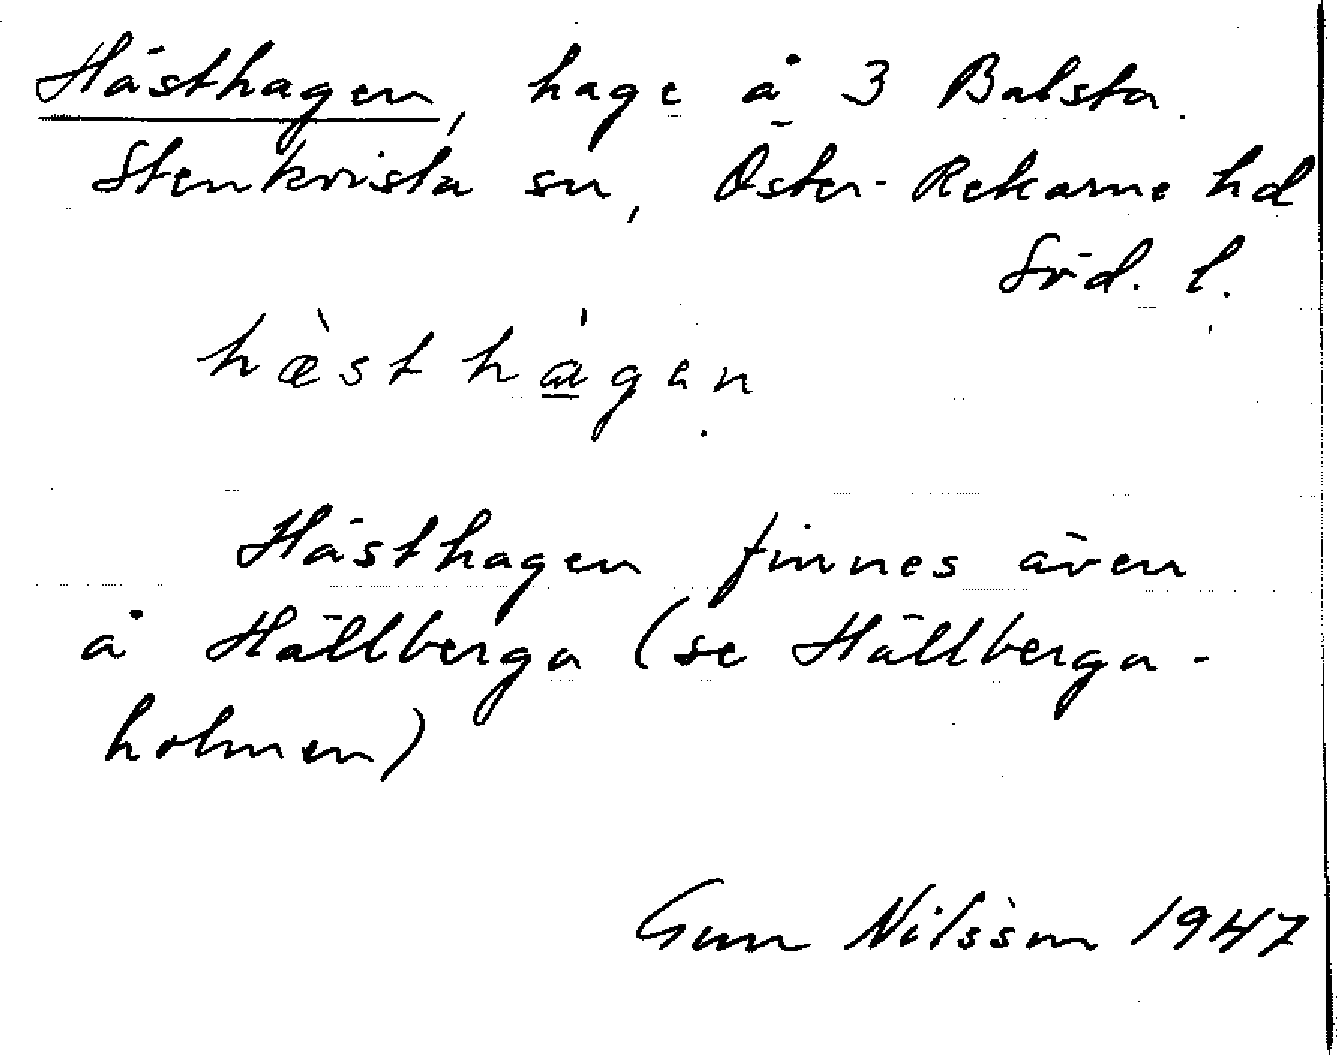 Hästhagen, hage å 3 Balsta.
Stenkvista sn, Öster-Rekarne hd
Söd. l.
hæ̀sthàgan
Hästhagen finnes även
å Hällberga (se Hällberga-
holmen)
Gun Nilsson 1947